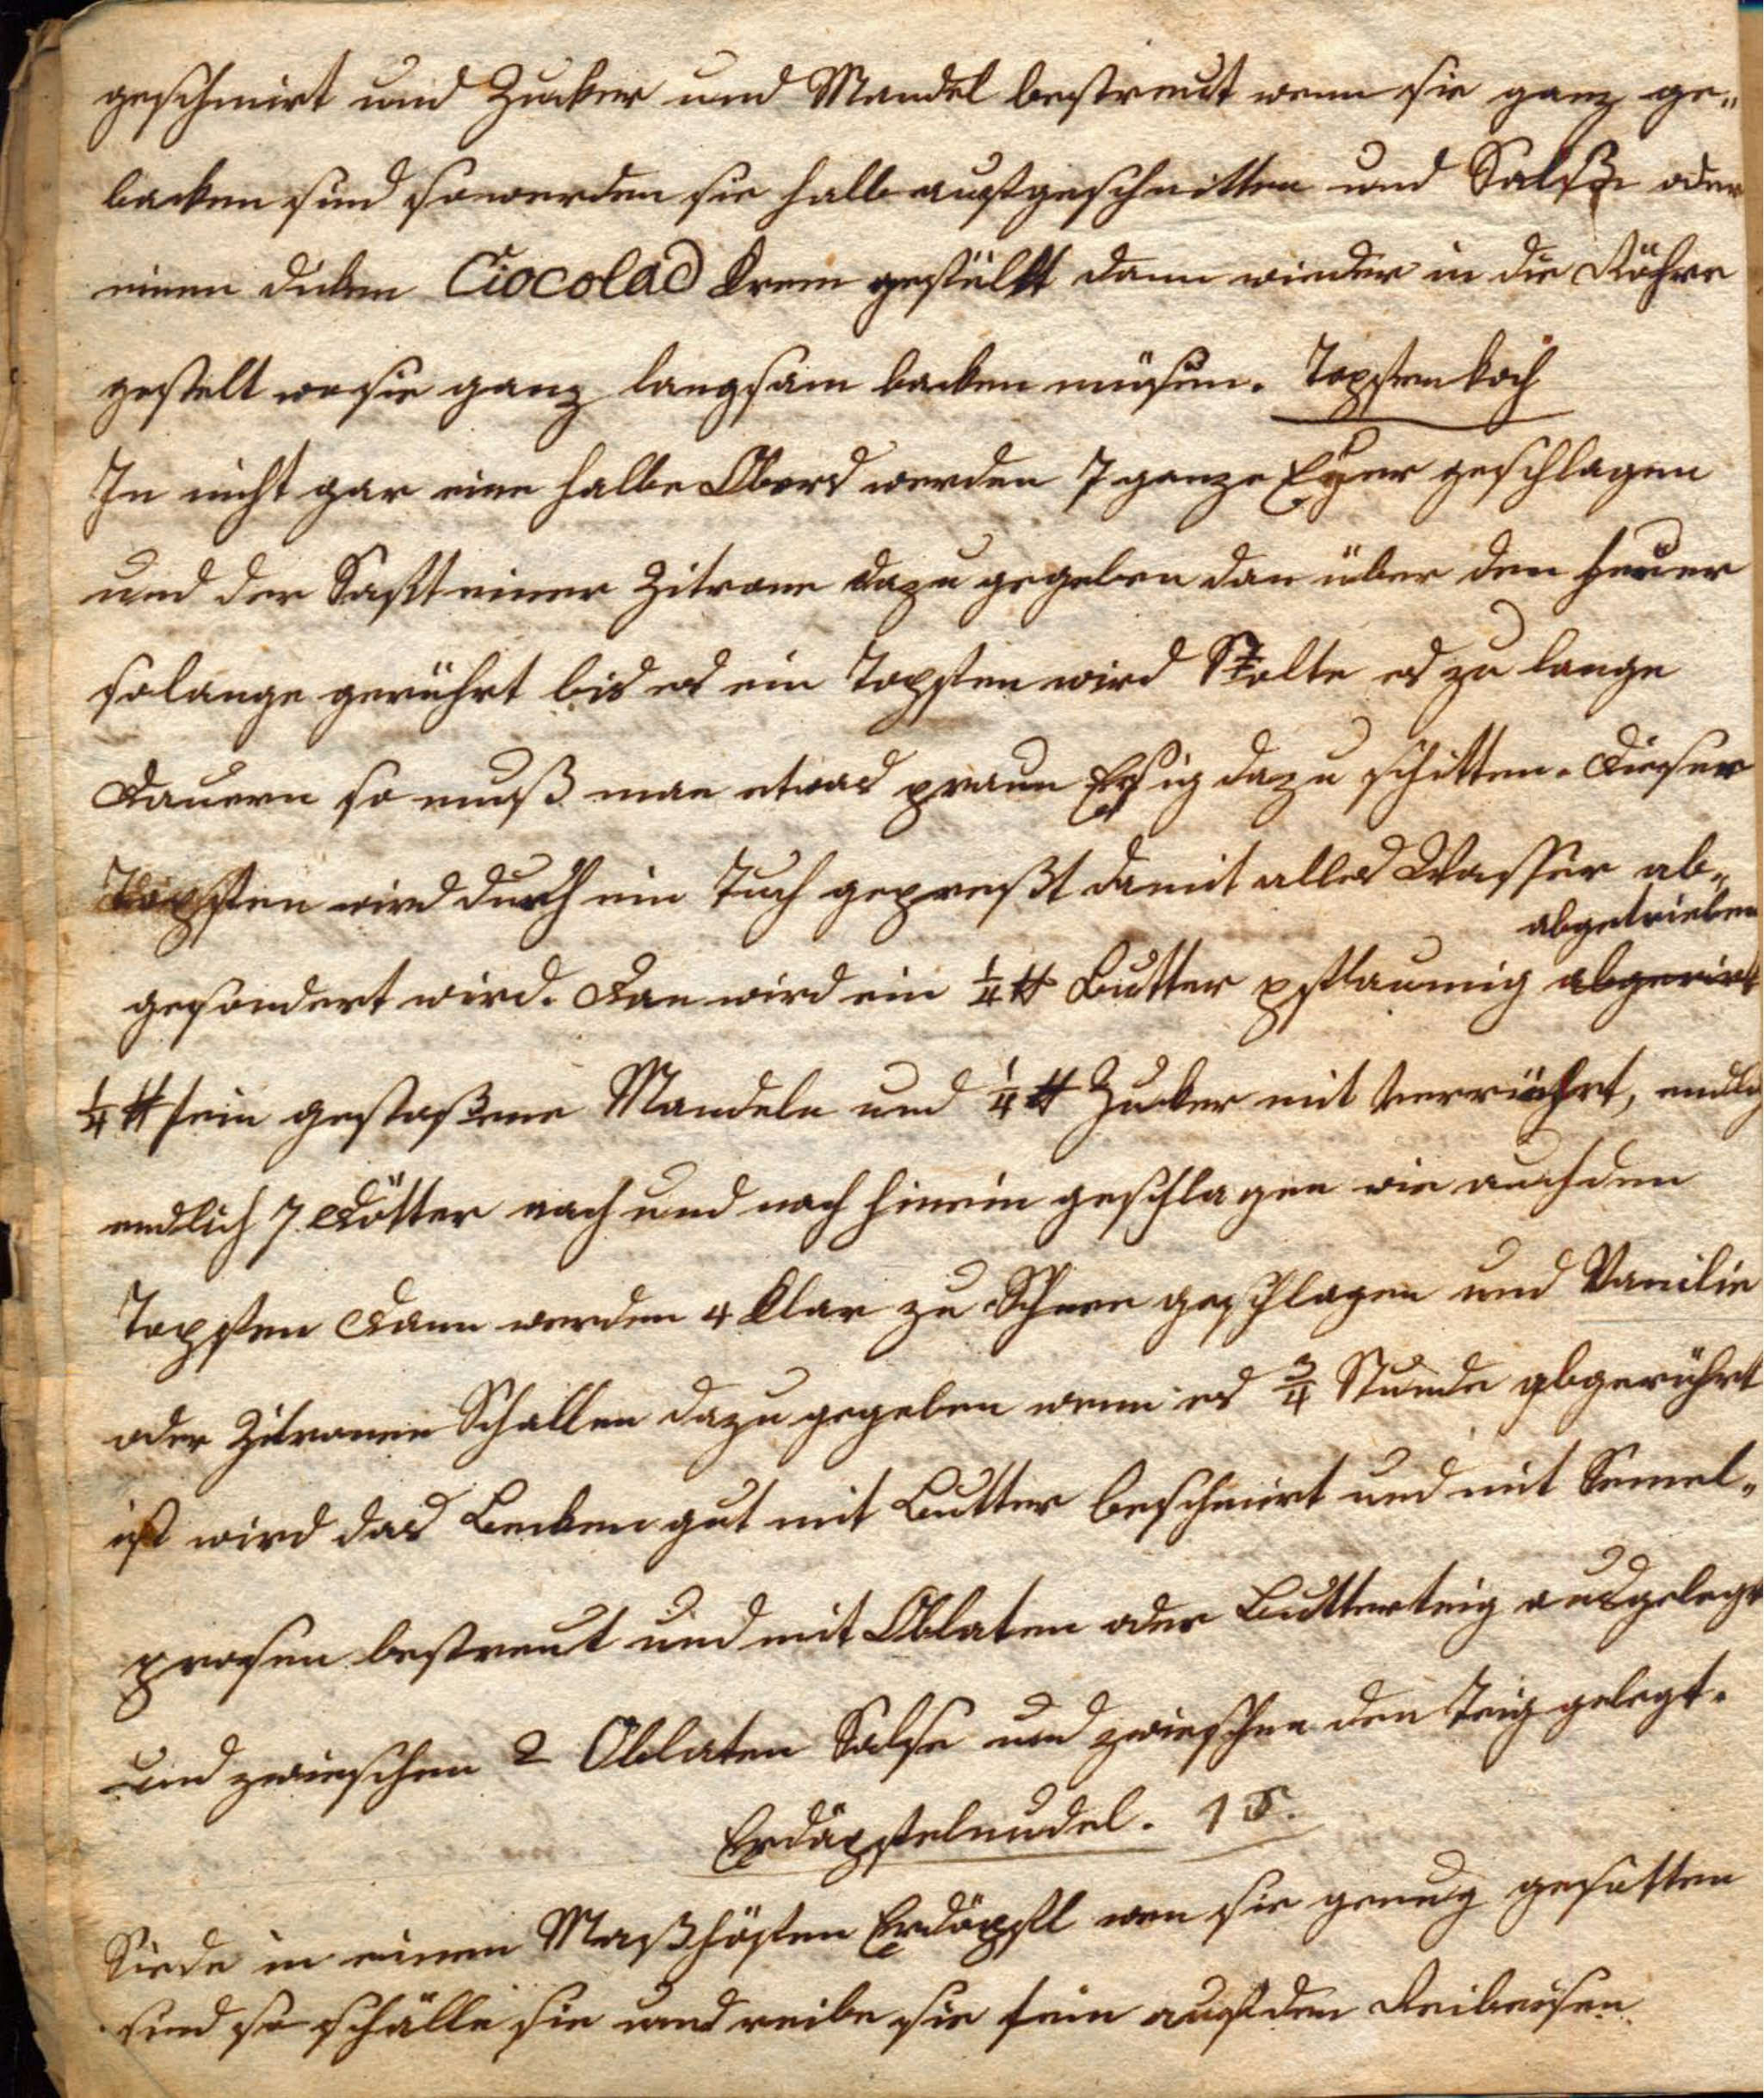 geschmirt und Zucker und Mandel bestreut wenn sie ganz ge„
backen sind so werden sie halb aufgeschnitten und Salße oder
einen dicken Ciocolad Krem gefüllt dann wieder in die Röhre
gestelt wo sie ganz langsam backen müsen. Topfenkoch
In nicht gar eine halbe Obers werden 7 ganze Eyer geschlagen
und der Saft einer Zitrone dazu gegeben dan über den Feuer
solange gerührt bis es ein Topfen wird Solte es zu lange
Dauern so muß man etwas praun Essig dazu schitten. Dieser
Topfen wird durch ein Tuch gepreßt damit alles Wasser ab„
abgetrieben
gesondert wird. Dan wird ein ¼ ℔ Butter pflaumig abgerirt
¼ ℔ fein gestoßene Mandeln und ¼ ℔ Zucker mit verrührt, endlich
endlich 7 Dötter nach und nach hinein geschlagen wie auch den
Topfen Dann werden 4 Klar zu Schnee geschlagen und Vanilie
oder Zitronen Schallen dazu gegeben wenn es ¾ Stunde abgerührt
ist wird das Becken gut mit Butter beschmirt und mit Semel„
prosen bestreut und mit Oblaten oder Butterteig ausgelegt
und zwieschen 2 Oblaten Salse und zwieschen den Teig gelegt.
Erdäpfelnudel. 15.
Siede in einem Maßhäfen Erdäpfl wen sie genug gesotten
sind so schälle sie und reibe sie fein auf den Reibeisen